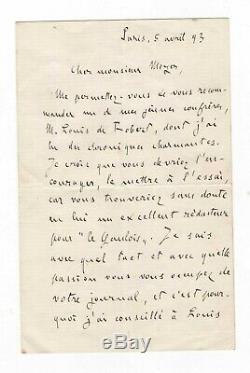 Paris, 5 avril 93
Cher monsieur Meyer,
Me permettez-vous de vous recom-
mander un de mes jeunes confrères,
M. Louis de Robert, dont j'ai
lu des chroniques charmantes.
Je crois que vous devriez l'en-
courager, le mettre à l'essai,
car vous trouveriez sans doute
en lui un excellent rédacteur
pour "le Gaulois". Je sais
avec quel tact et avec quelle
passion vous vous occupez de
votre journal, et c'est pour-
quoi j'ai conseillé à Louis